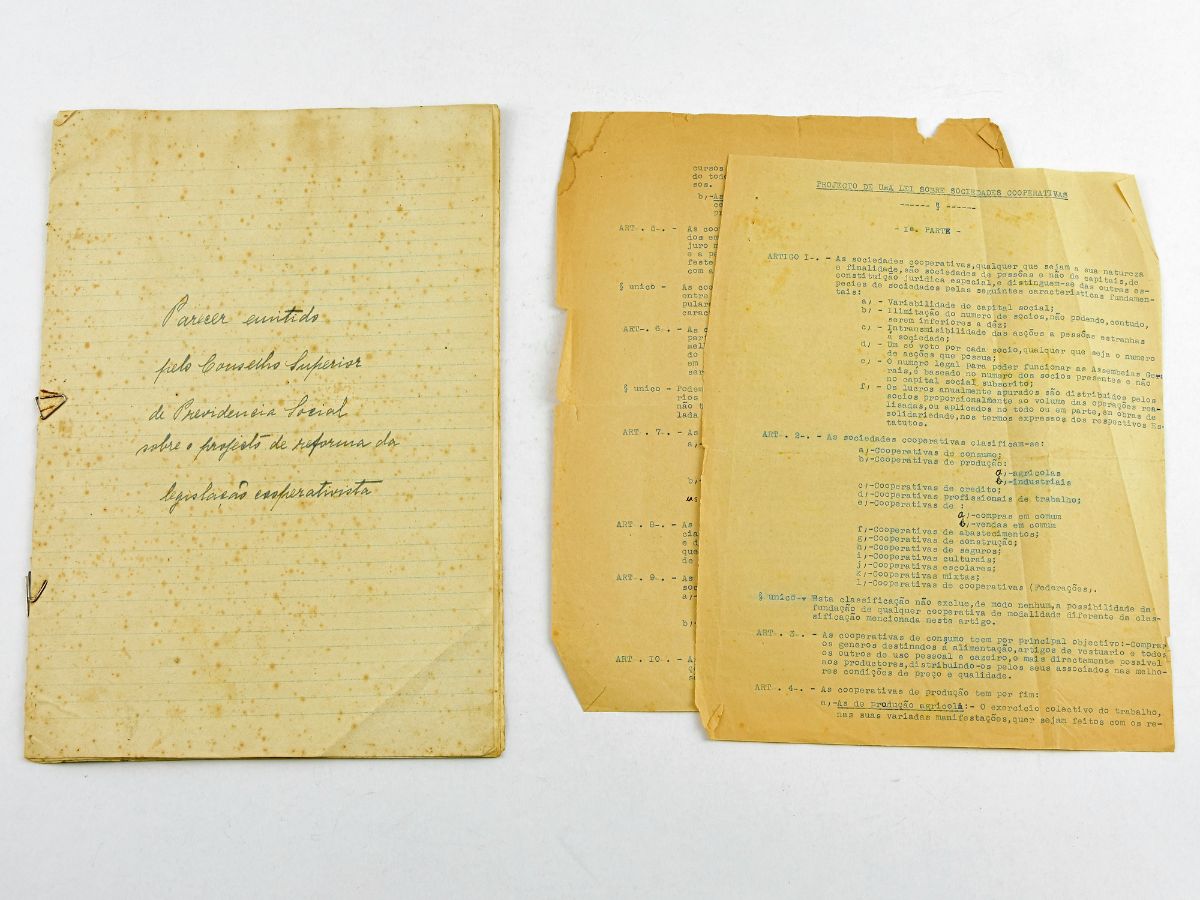 Parecer emitido
pelo Conselho Superior
de Previdencia Social
sobre o projecto de reforma da
legislação cooperativista
cursos
do tod
sos.
b,-As
co
p
ART. 5-. - As coo
dos em
juro m
e a pe
feste
com a
§ unico - As coo
entre
pular
carac
ART. 6. - As c
par
mel
do
em
ser
§ unico - Podem
rios
não t
lada
ART. 7. - As
a,
b,-
as
ART. 8-. - As
cia
e d
que
de
ART. 9. - As
soc
a,-
b,-
ART. 10. - A
ç
s
PROJECTO DE UMA LEI SOBRE SOCIEDADES COOPERATIVAS
------ § ------
- Ia. PARTE -
ARTIGO I-. - As sociedades cooperativas,qualquer que sejam a sua natureza
e finalidade,são sociedades de pessôas e não de capitais,de
constituição juridica especial,e distinguem-se das outras es-
pecies de sociedades pelas seguintes caracteristicas fundamen-
tais:
a, - Variabilidade do capital social;
b, - Ilimitação do numero de socios,não podendo,contudo,
serem inferiores a déz;
c, - Intransmisibilidade das acções a pessôas estranhas
á sociedade;
d, - Um só voto por cada socio,qualquer que seja o numero
de acções que possua;
e, - O numero legal para poder funcionar as Assembeias Gera
rais,é baseado no numero dos socios presentes e não
no capital social subscrito;
f, - Os lucros anualmente apurados são distribuidos pelos
socios proporcionalmente ao volume das operações rea-
lisadas,ou aplicados no todo ou em parte,em obras de
solidariedade,nos termos expressos dos respectivos Es-
tatutos.
ART. 2-. - As sociedades cooperativas clasificam-se:
a,-Cooperativas de consumo;
b,-Cooperativas de produção:
a,-agricolas
b,-industriais
c,-Cooperativas de credito;
d,-Cooperativas profissionais de trabalho;
e,-Cooperativas de :
a,-compras em comum
b,-vendas em comum
f,-Cooperativas de abastecimentos;
g,-Cooperativas de construção;
h,-Cooperativas de seguros;
i,-Cooperativas culturais;
j,-Cooperativas escolares;
k,-Cooperativas mixtas;
l,-Cooperativas de cooperativas (Federações,.
§ unico-. Esta classificação não exclue,de modo nenhum,a possibilidade da
fundação de qualquer cooperativa de modalidade diferente da clas-
sificação mencionada neste artigo.
ART. 3-. - As cooperativas de consumo teem por principal objectivo:-Comprar
os generos destinados á alimentação,artigos de vestuario e todos
os outros de uso pessoal e caseiro,o mais directamente possivel
aos productores,distribuindo-os pelos seus associados nas melho-
res condições de preço e qualidade.
ART. 4-. - As cooperativas de produção tem por fim:
a,-As de produção agricola:- O exercicio colectivo do trabalho,
nas suas variadas manifestações,quer sejam feitos com os re-